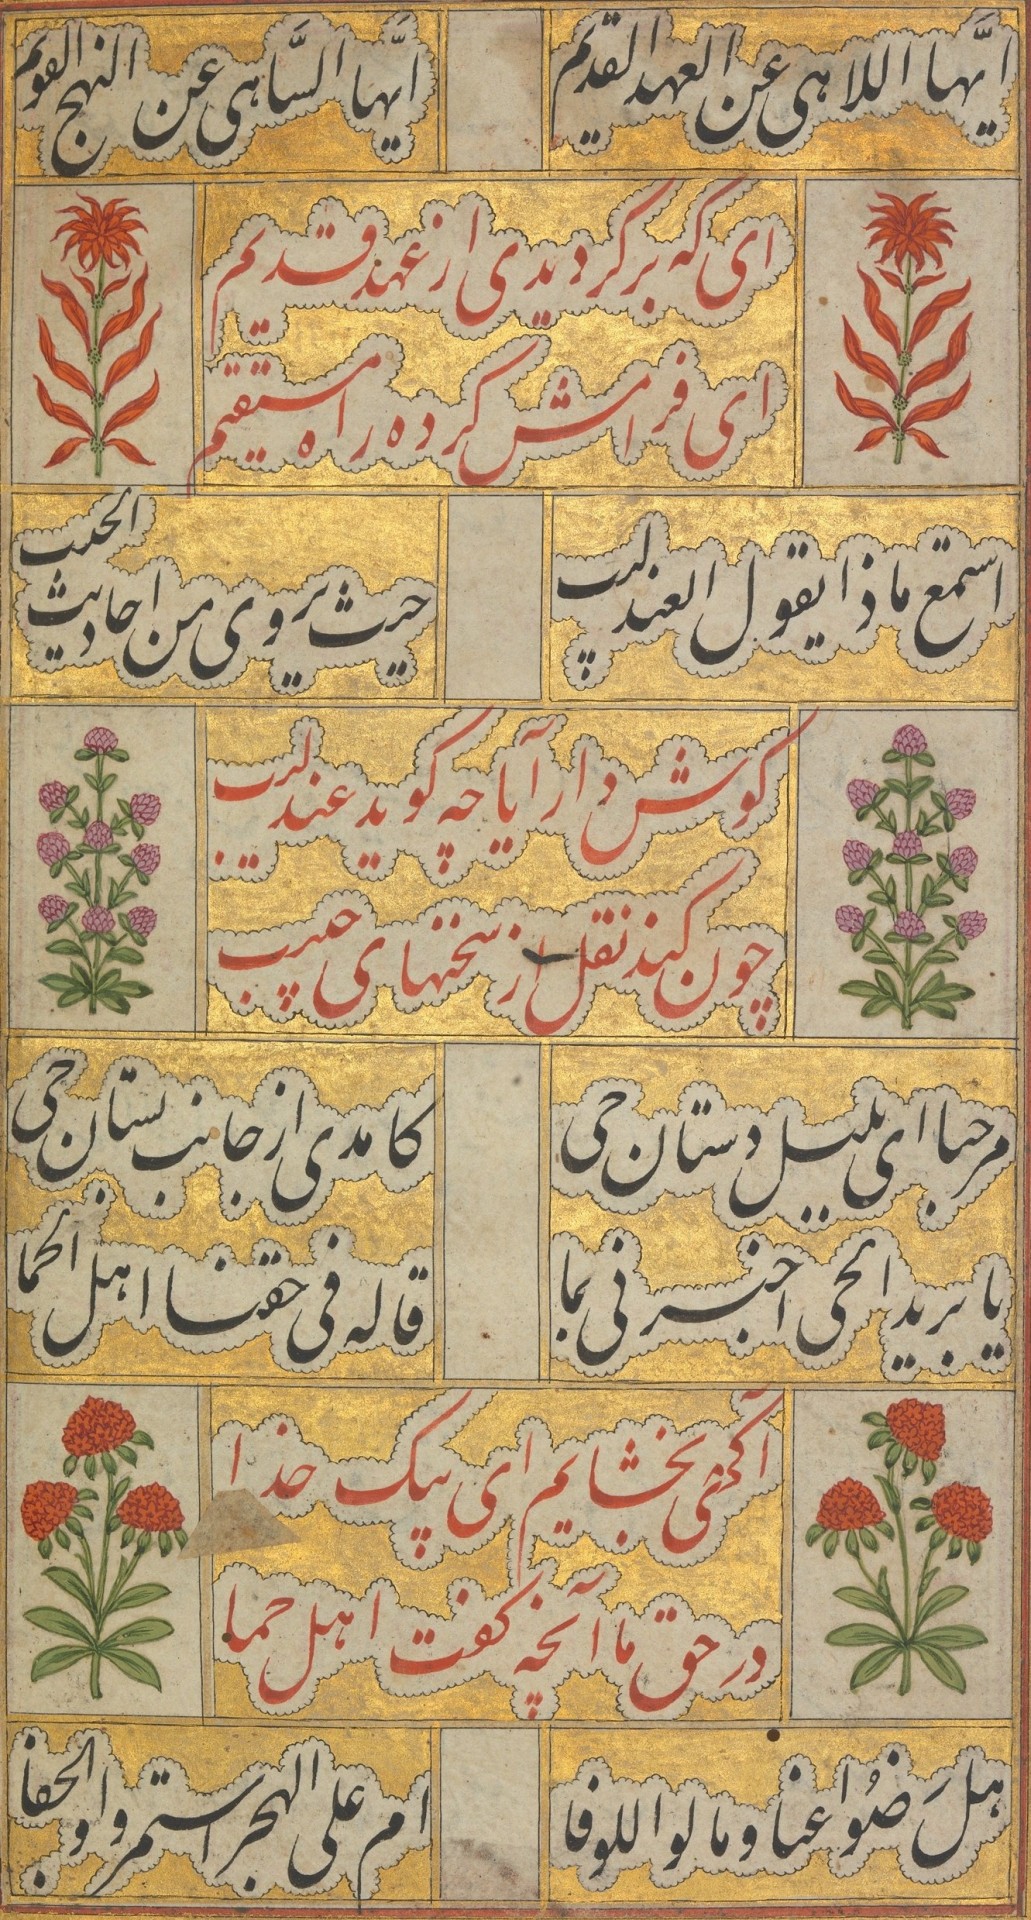 ایّها اللاهی عن العهد القدیم
ایّها السَّاهی عن النهج القویم
ای که برکردیدی از عهد قدیم
ای فرامش کرده راه مستقیم
استمع ماذا یقول العندلیب
حیث یروی من احادیث الحبیب
کوش دار آیا چه کوید عندلیب
چون کند نقل از سخنهای حبیب
مرحبا ای بلبل دستان حی
کامدی از جانب بستان حی
یا برید الحی اخبرنی بما
قاله فی حقنا اهل الحما
آکهی بخشایم ای پیک خدا
در حق ما آنچه کفت اهل حما
هل رَضُوا عنا ومالوا للوفا
ام علی الهجر استمروا والجفا